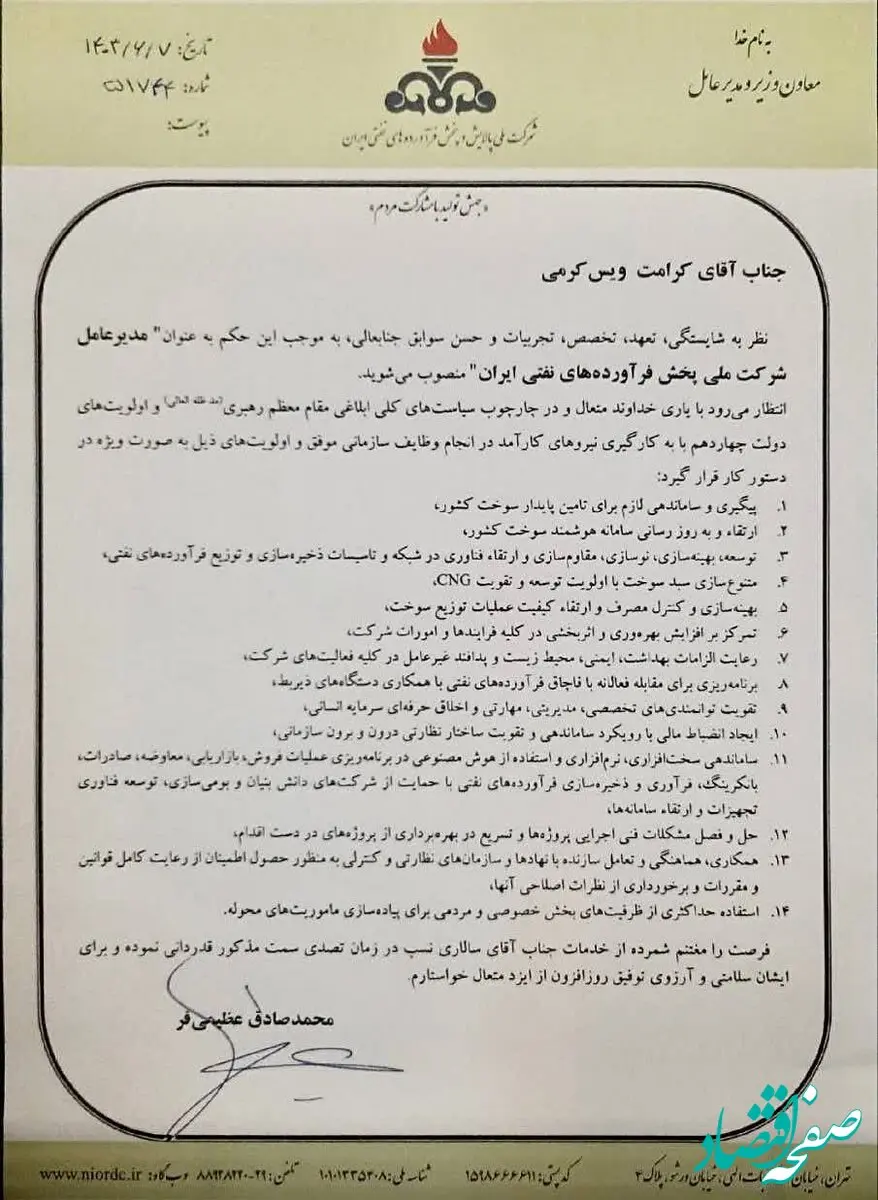 به نام خدا
معاون وزیر و مدیرعامل
شرکت ملی پالایش و پخش فرآورده‌های نفتی ایران
تاریخ: ۱۴۰۳/۶/۷
شماره: ۵۱۷۴۴
پیوست:
«جهش تولید با مشارکت مردم»
جناب آقای کرامت ویس‌کرمی
نظر به شایستگی، تعهد، تخصص، تجربیات و حسن سوابق جنابعالی، به موجب این حکم به عنوان" مدیرعامل
شرکت ملی پخش فرآورده‌های نفتی ایران" منصوب می‌شوید.
انتظار می‌رود با یاری خداوند متعال و در چارچوب سیاست‌های کلی ابلاغی مقام معظم رهبری(مد ظله العالی) و اولویت‌های
دولت چهاردهم با به کارگیری نیروهای کارآمد در انجام وظایف سازمانی موفق و اولویت‌های ذیل به صورت ویژه در
دستور کار قرار گیرد:
۱. پیگیری و ساماندهی لازم برای تامین پایدار سوخت کشور،
۲. ارتقاء و به روز رسانی سامانه هوشمند سوخت کشور،
۳. توسعه، بهینه‌سازی، نوسازی، مقاوم‌سازی و ارتقاء فناوری در شبکه و تاسیسات ذخیره‌سازی و توزیع فرآورده‌های نفتی،
۴. متنوع‌سازی سبد سوخت با اولویت توسعه و تقویت CNG،
۵. بهینه‌سازی و کنترل مصرف و ارتقاء کیفیت عملیات توزیع سوخت،
۶. تمرکز بر افزایش بهره‌وری و اثربخشی در کلیه فرایندها و امورات شرکت،
۷. رعایت الزامات بهداشت، ایمنی، محیط زیست و پدافند غیرعامل در کلیه فعالیت‌های شرکت،
۸. برنامه‌ریزی برای مقابله فعالانه با قاچاق فرآورده‌های نفتی با همکاری دستگاه‌های ذیربط،
۹. تقویت توانمندی‌های تخصصی، مدیریتی، مهارتی و اخلاق حرفه‌ای سرمایه انسانی،
۱۰. ایجاد انضباط مالی با رویکرد ساماندهی و تقویت ساختار نظارتی درون و برون سازمانی،
۱۱. ساماندهی سخت‌افزاری، نرم‌افزاری و استفاده از هوش مصنوعی در برنامه‌ریزی عملیات فروش، بازاریابی، معاوضه، صادرات،
بانکرینگ، فرآوری و ذخیره‌سازی فرآورده‌های نفتی با حمایت از شرکت‌های دانش بنیان و بومی‌سازی، توسعه فناوری
تجهیزات و ارتقاء سامانه‌ها،
۱۲. حل و فصل مشکلات فنی اجرایی پروژه‌ها و تسریع در بهره‌برداری از پروژه‌های در دست اقدام،
۱۳. همکاری، هماهنگی و تعامل سازنده با نهادها و سازمان‌های نظارتی و کنترلی به منظور حصول اطمینان از رعایت کامل قوانین
و مقررات و برخورداری از نظرات اصلاحی آنها،
۱۴. استفاده حداکثری از ظرفیت‌های بخش خصوصی و مردمی برای پیاده‌سازی ماموریت‌های محوله.
فرصت را مغتنم شمرده از خدمات جناب آقای سالاری نسب در زمان تصدی سمت مذکور قدردانی نموده و برای
ایشان سلامتی و آرزوی توفیق روزافزون از ایزد متعال خواستارم.
محمدصادق عظیمی‌فر
صفحه اقتصاد
تهران، خیابان ورشو، پلاک ۴ کد پستی: ۱۵۹۸۶۶۶۶۱۱ شناسه ملی: ۱۰۱۰۱۳۳۵۴۰۸ تلفن: ۲۹-۸۸۹۲۸۲۲۰ وب‌گاه: www.niordc.ir